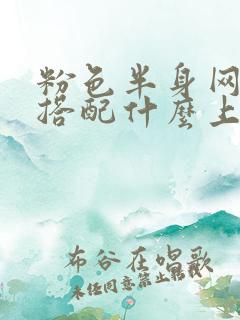 粉色半身网
搭配什麼上
布谷在唱歌
未经同意禁止转载